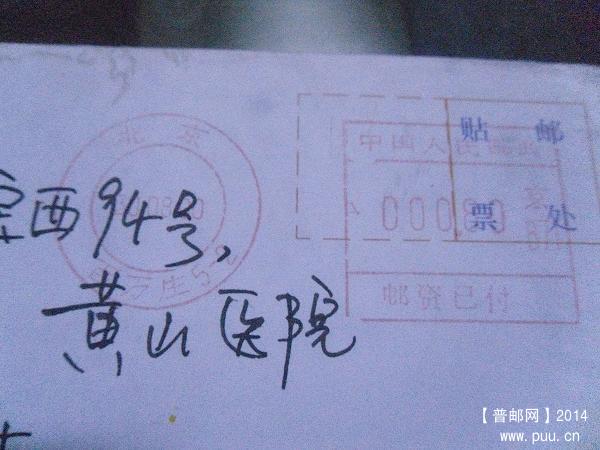 北 京
贴 邮
票 处
中国人民邮政
00080
京
邮资已付
西94号,
黄山医院
【普邮网】2014
www.puu.cn